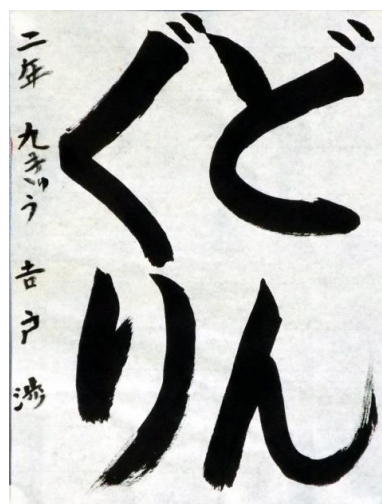 どん
ぐり
二年 九きゅう 吉戸 渉